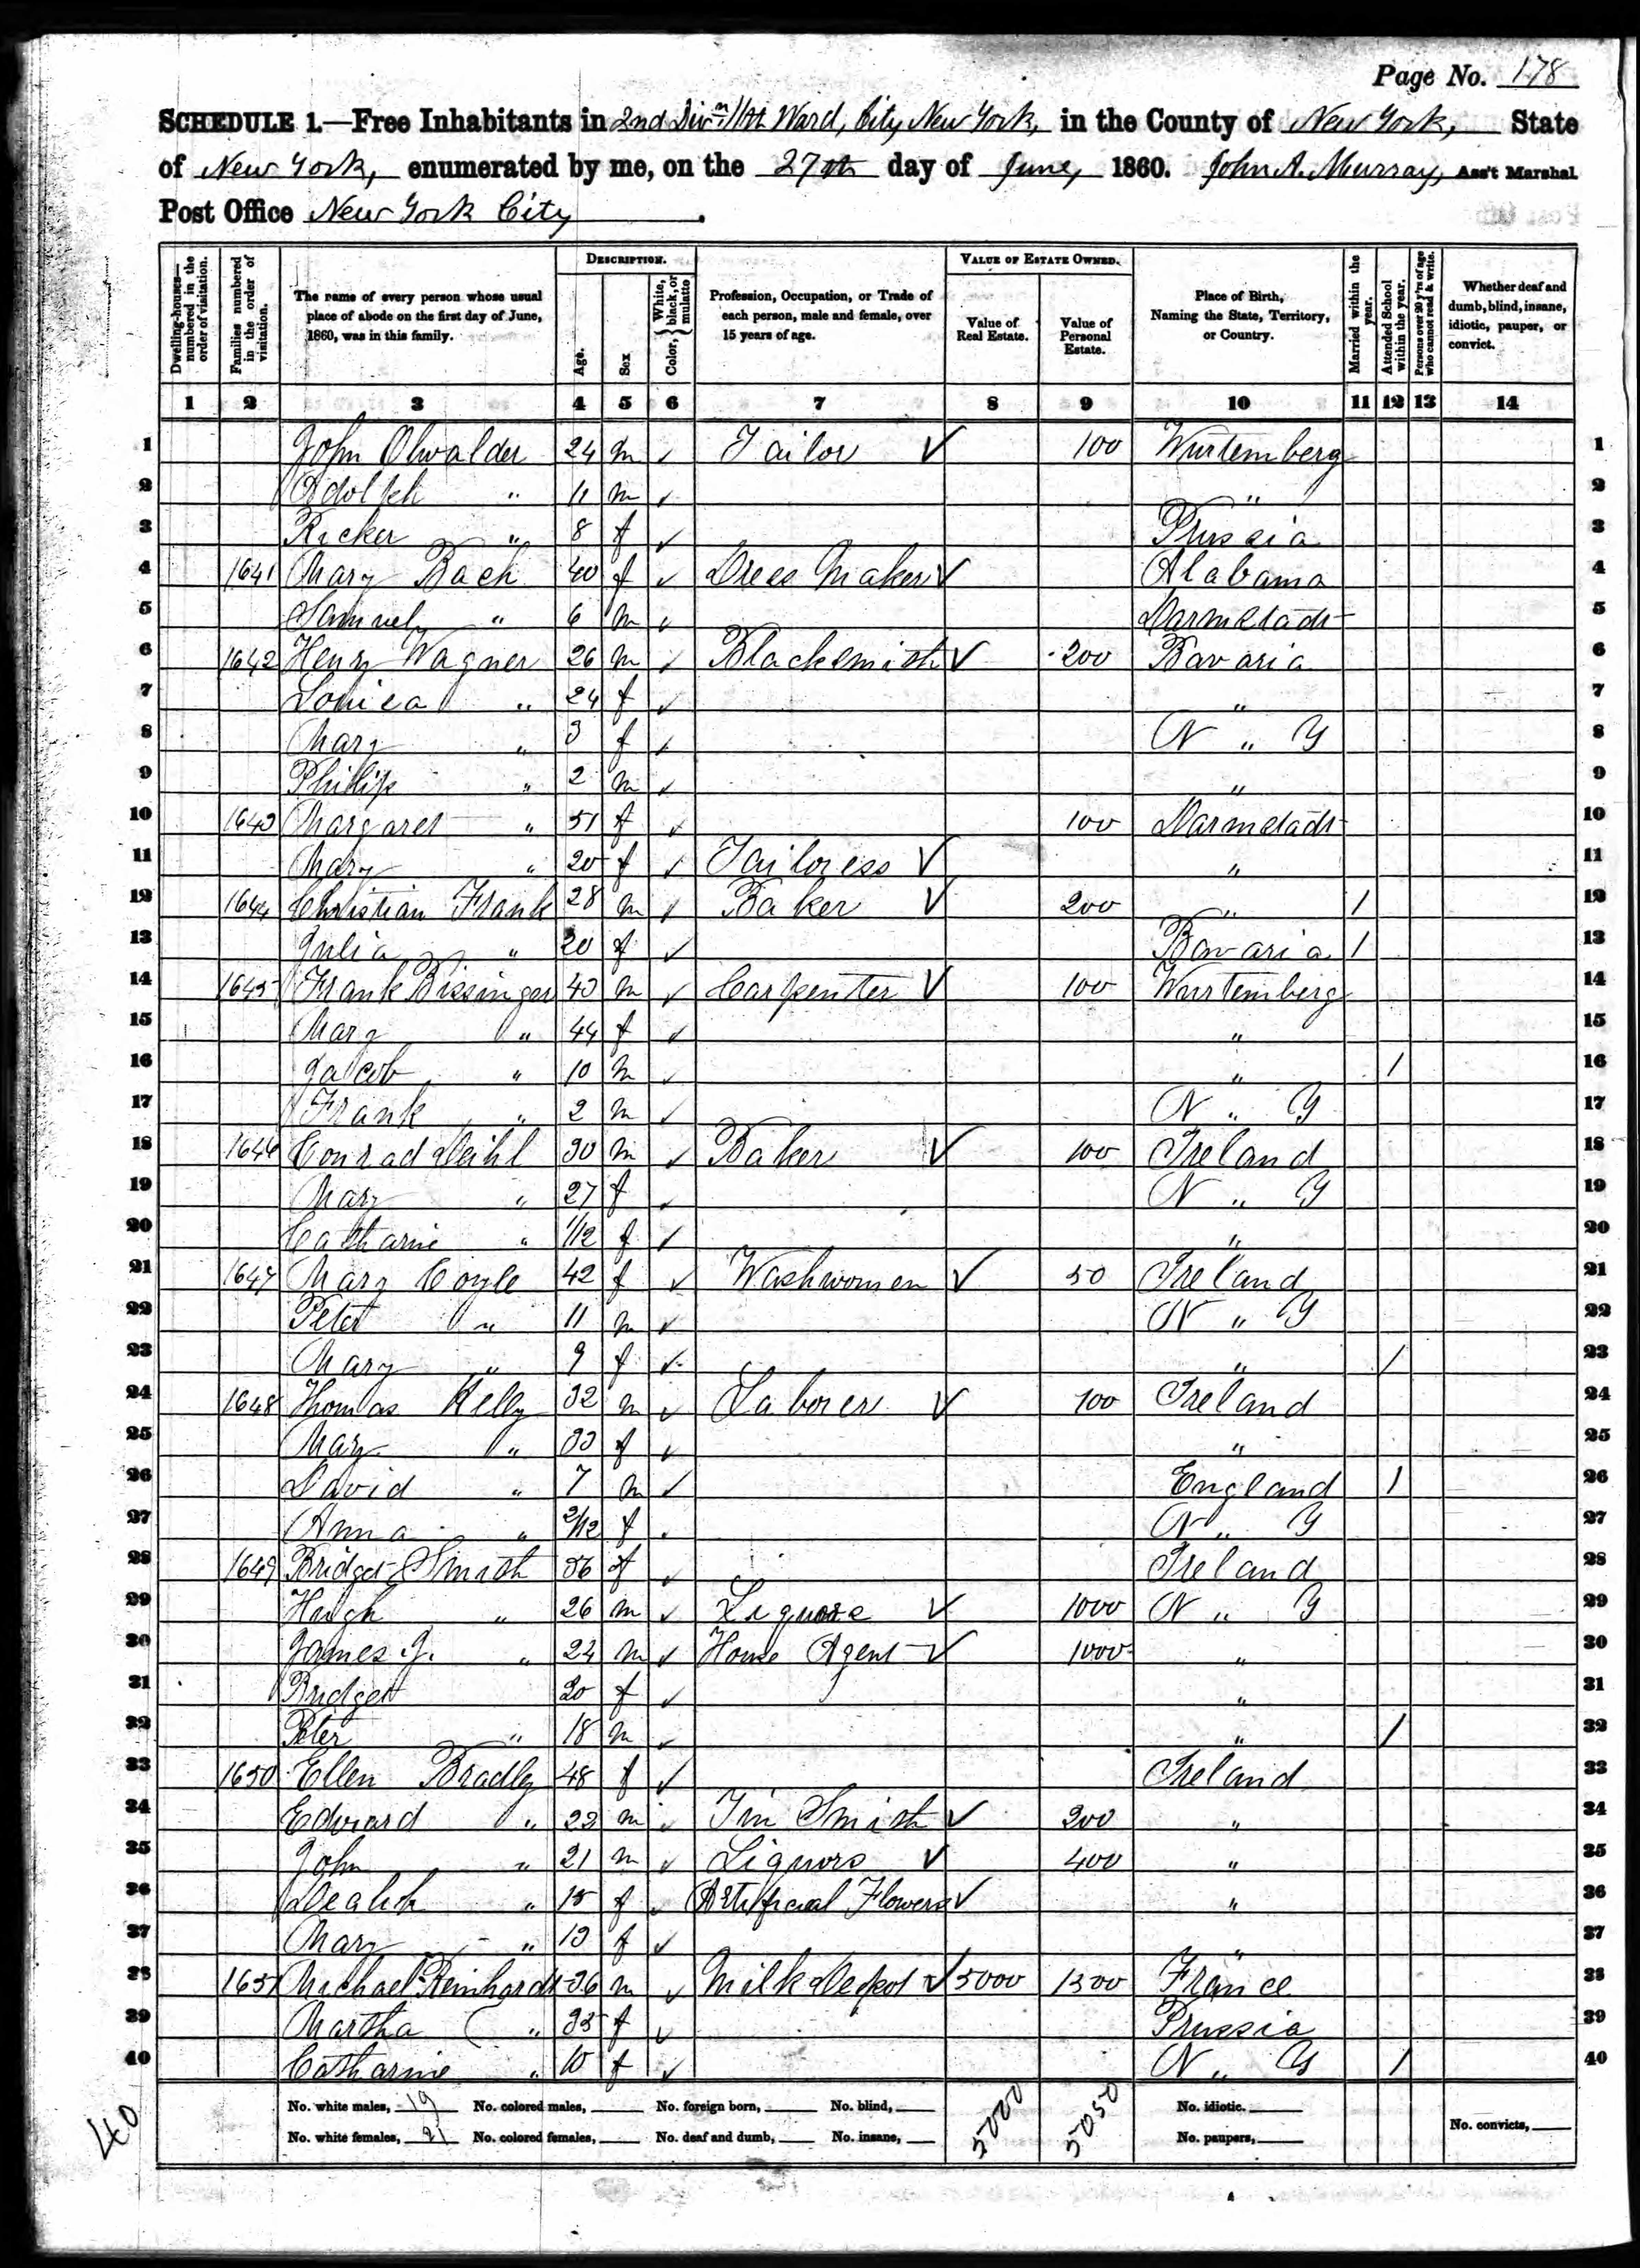 Page No. 178
SCHEDULE 1.—Free Inhabitants in 2nd Divn 11th Ward, City New York, in the County of New York, State
of New York, enumerated by me, on the 27th day of June, 1860. John A. Murray, Ass't Marshal
Post Office New York City.
Dwelling-houses—numbered in the order of visitation.
Families numbered in the order of visitation.
The name of every person whose usual place of abode on the first day of June, 1860, was in this family.
DESCRIPTION.
Age.
Sex
Color, { White, black, or mulatto
Profession, Occupation, or Trade of each person, male and female, over 15 years of age.
VALUE OF ESTATE OWNED.
Value of Real Estate.
Value of Personal Estate.
Place of Birth, Naming the State, Territory, or Country.
Married within the year.
Attended School within the year.
Persons over 20 y'rs of age who cannot read & write.
Whether deaf and dumb, blind, insane, idiotic, pauper, or convict.
1 2 3 4 5 6 7 8 9 10 11 12 13 14
1 John Olwalder 24 m ✓ Tailor ✓ 100 Wurtemberg 1
2 Adolph " 11 m ✓ " 2
3 Ricker " 8 f ✓ Prussia 3
4 1641 Mary Bach 40 f ✓ Dress Maker ✓ Alabama 4
5 Samuel " 6 m ✓ Darmstadt 5
6 1642 Henry Wagner 26 m ✓ Blacksmith ✓ 200 Bavaria 6
7 Louisa " 24 f ✓ " 7
8 Mary " 3 f ✓ N " Y 8
9 Phillip " 2 m ✓ " 9
10 1643 Margaret " 51 f ✓ 100 Darmstadt 10
11 Mary " 20 f ✓ Tailoress ✓ " 11
12 1644 Christian Frank 28 m ✓ Baker ✓ 200 " / 12
13 Julia " 20 f ✓ Bavaria / 13
14 1645 Frank Bissinger 43 m ✓ Carpenter ✓ 100 Wurtemberg 14
15 Mary " 44 f ✓ " 15
16 Jacob " 10 m ✓ " / 16
17 Frank " 2 m ✓ N " Y 17
18 1646 Conrad Deihl 30 m ✓ Baker ✓ 100 Ireland 18
19 Mary " 27 f ✓ N " Y 19
20 Catharine " 1/12 f ✓ " 20
21 1647 Mary Coyle 42 f ✓ Washwomen ✓ 50 Ireland 21
22 Peter " 11 m ✓ N " Y 22
23 Mary " 9 f ✓ " / 23
24 1648 Thomas Kelly 32 m ✓ Laborer ✓ 100 Ireland 24
25 Mary " 33 f ✓ " 25
26 David " 7 m ✓ England / 26
27 Anna " 2/12 f N " Y 27
28 1649 Bridget Smith 56 f ✓ Ireland 28
29 Hugh " 26 m ✓ Liquors ✓ 1000 N " Y 29
30 James J. " 24 m ✓ House Agent ✓ 1000 " 30
31 Bridget 20 f ✓ " 31
32 Peter " 18 m ✓ " / 32
33 1650 Ellen Bradley 48 f ✓ Ireland 33
34 Edward " 23 m ✓ Tin Smith ✓ 200 " 34
35 John " 21 m ✓ Liquors ✓ 400 " 35
36 " 15 f ✓ Artificial Flowers ✓ " 36
37 Mary " 13 f ✓ " 37
38 1651 Michael Reinhardt 36 m ✓ Milk Depot ✓ 5000 1300 France 38
39 Martha " 33 f ✓ Prussia 39
40 Catharine " 10 f ✓ N " Y / 40
No. white males, 19 No. colored males, No. foreign born, No. blind, 5000 5050 No. idiotic.
No. white females, 21 No. colored females, No. deaf and dumb, No. insane, No. paupers, No. convicts,
40